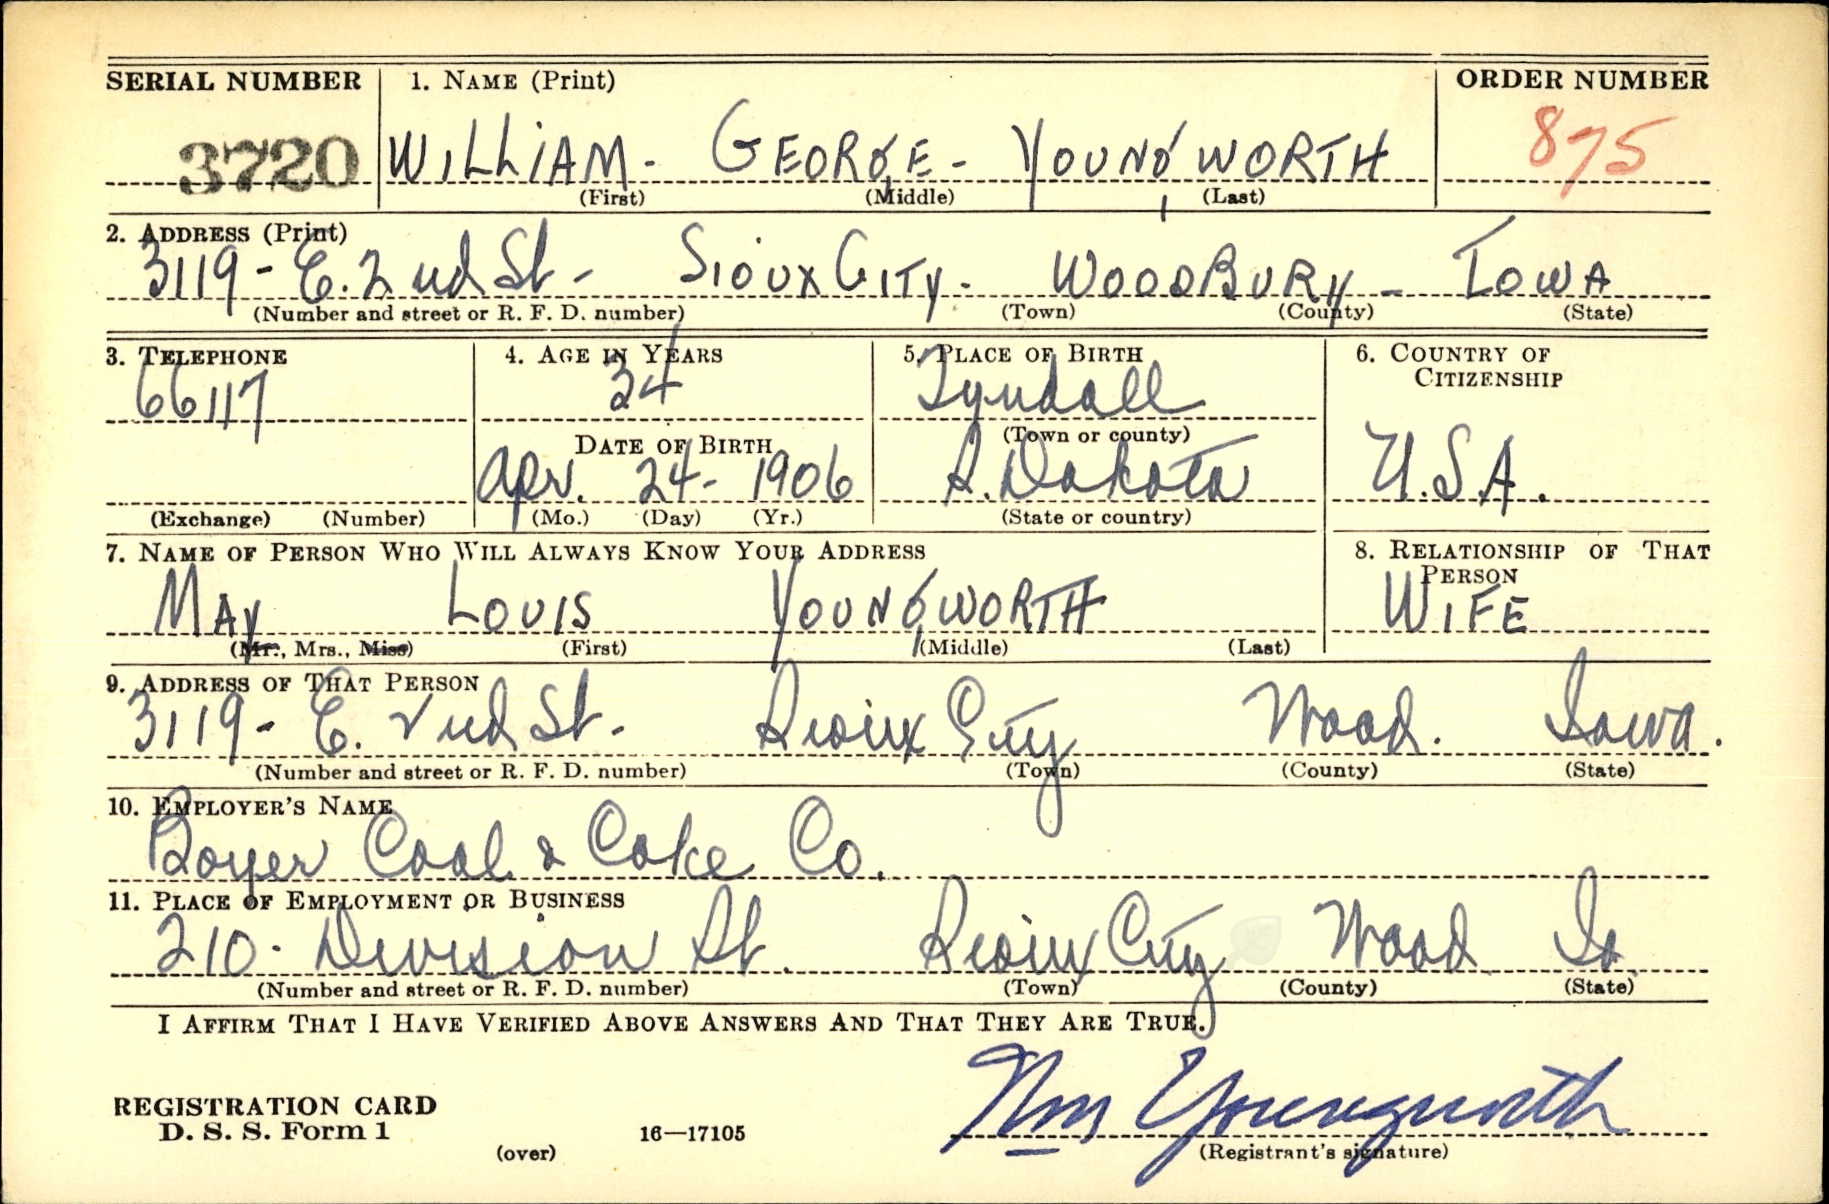 SERIAL NUMBER 1. NAME (Print) ORDER NUMBER
3720 WILLIAM - GEORGE - YOUNGWORTH 875
(First) (Middle) (Last)
2. ADDRESS (Print)
3119 - E. 2nd St - SIOUX CITY - WOODBURY - IOWA
(Number and street or R. F. D. number) (Town) (County) (State)
3. TELEPHONE 4. AGE IN YEARS 5. PLACE OF BIRTH 6. COUNTRY OF CITIZENSHIP
66117 34 Tyndall
DATE OF BIRTH (Town or county)
Apr. 24 - 1906 S. Dakota U.S.A.
(Exchange) (Number) (Mo.) (Day) (Yr.) (State or country)
7. NAME OF PERSON WHO WILL ALWAYS KNOW YOUR ADDRESS 8. RELATIONSHIP OF THAT PERSON
MAY LOUIS YOUNGWORTH WIFE
(Mr., Mrs., Miss) (First) (Middle) (Last)
9. ADDRESS OF THAT PERSON
3119 - E. 2nd St. - Sioux City Wood. Iowa.
(Number and street or R. F. D. number) (Town) (County) (State)
10. EMPLOYER'S NAME
Boyer Coal & Coke Co.
11. PLACE OF EMPLOYMENT OR BUSINESS
210 - Division St. Sioux City Wood Ia.
(Number and street or R. F. D. number) (Town) (County) (State)
I AFFIRM THAT I HAVE VERIFIED ABOVE ANSWERS AND THAT THEY ARE TRUE.
REGISTRATION CARD
D. S. S. Form 1 Wm Youngworth
(over) 16—17105 (Registrant's signature)